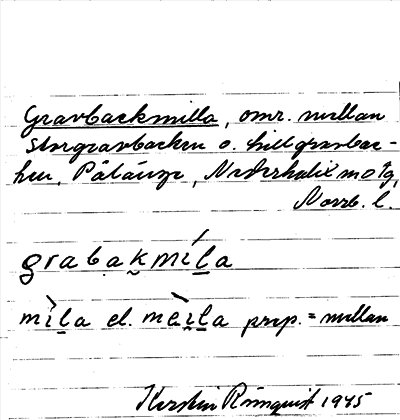 Gravbackmilla, omr. mellan
Storgravbacken o. Lillgravbac-
ken, Pålänge, Nederkalix sn
Norrb. l.
grabakmíla
mìla el. mèi̯la prep. = mellan
Kerstin Rönnquist 1945